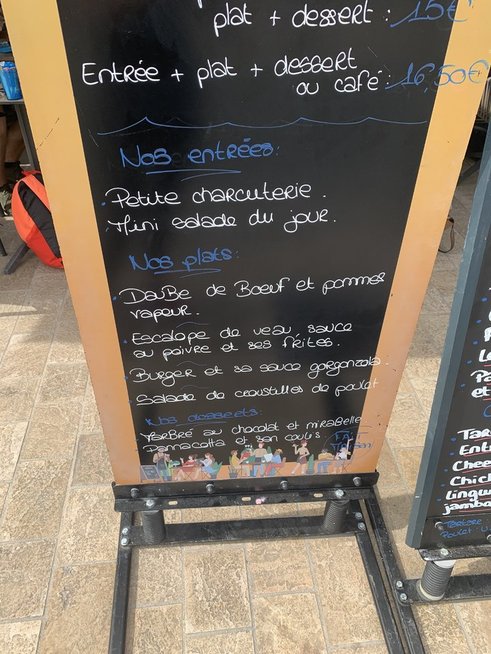 plat + dessert : 15€
Entrée + plat + dessert
ou café : 16,50€
Nos entrées:
Petite charcuterie.
Mini salade du jour.
Nos plats:
DauBe de Bœuf et pommes
vapeur.
Escalope de veau, sauce
au poivre et ses frites.
Burger et sa sauce gorgonzola.
Salade de croustilles de poulet
Nos desserts:
MarBré au chocolat et mirabelle
Pannacotta et son coulis
FAIT